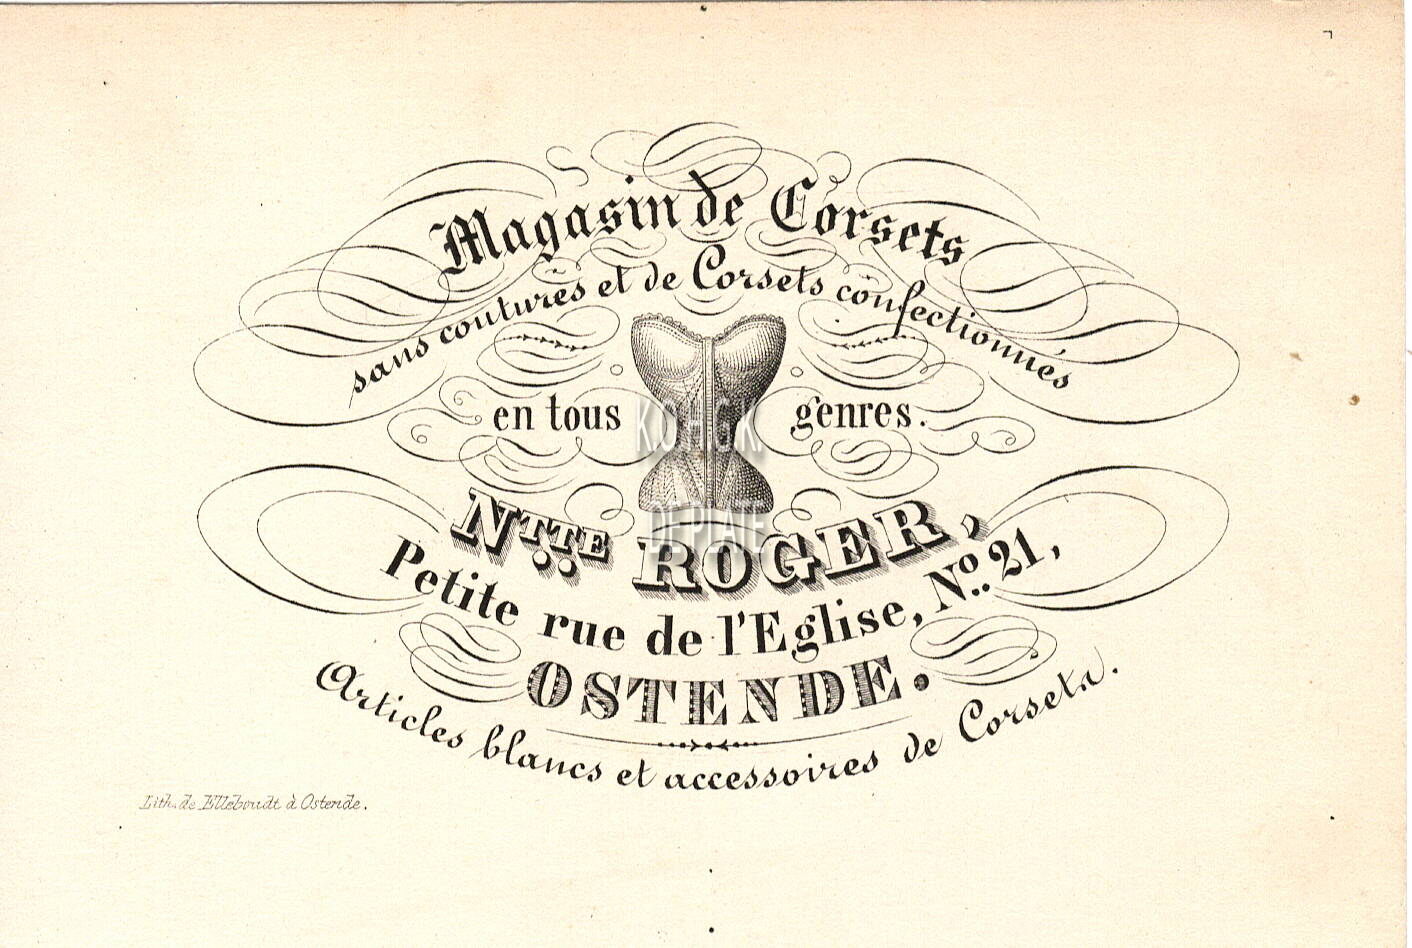 Magasin de Corsets
sans coutures et de Corsets confectionnés
en tous genres.
K.O.H.G.K.
DEPLATE
Ntte ROGER,
Petite rue de l'Eglise, No. 21,
OSTENDE.
Articles blancs et accessoires de Corsets.
Lith. de Elleboudt à Ostende.